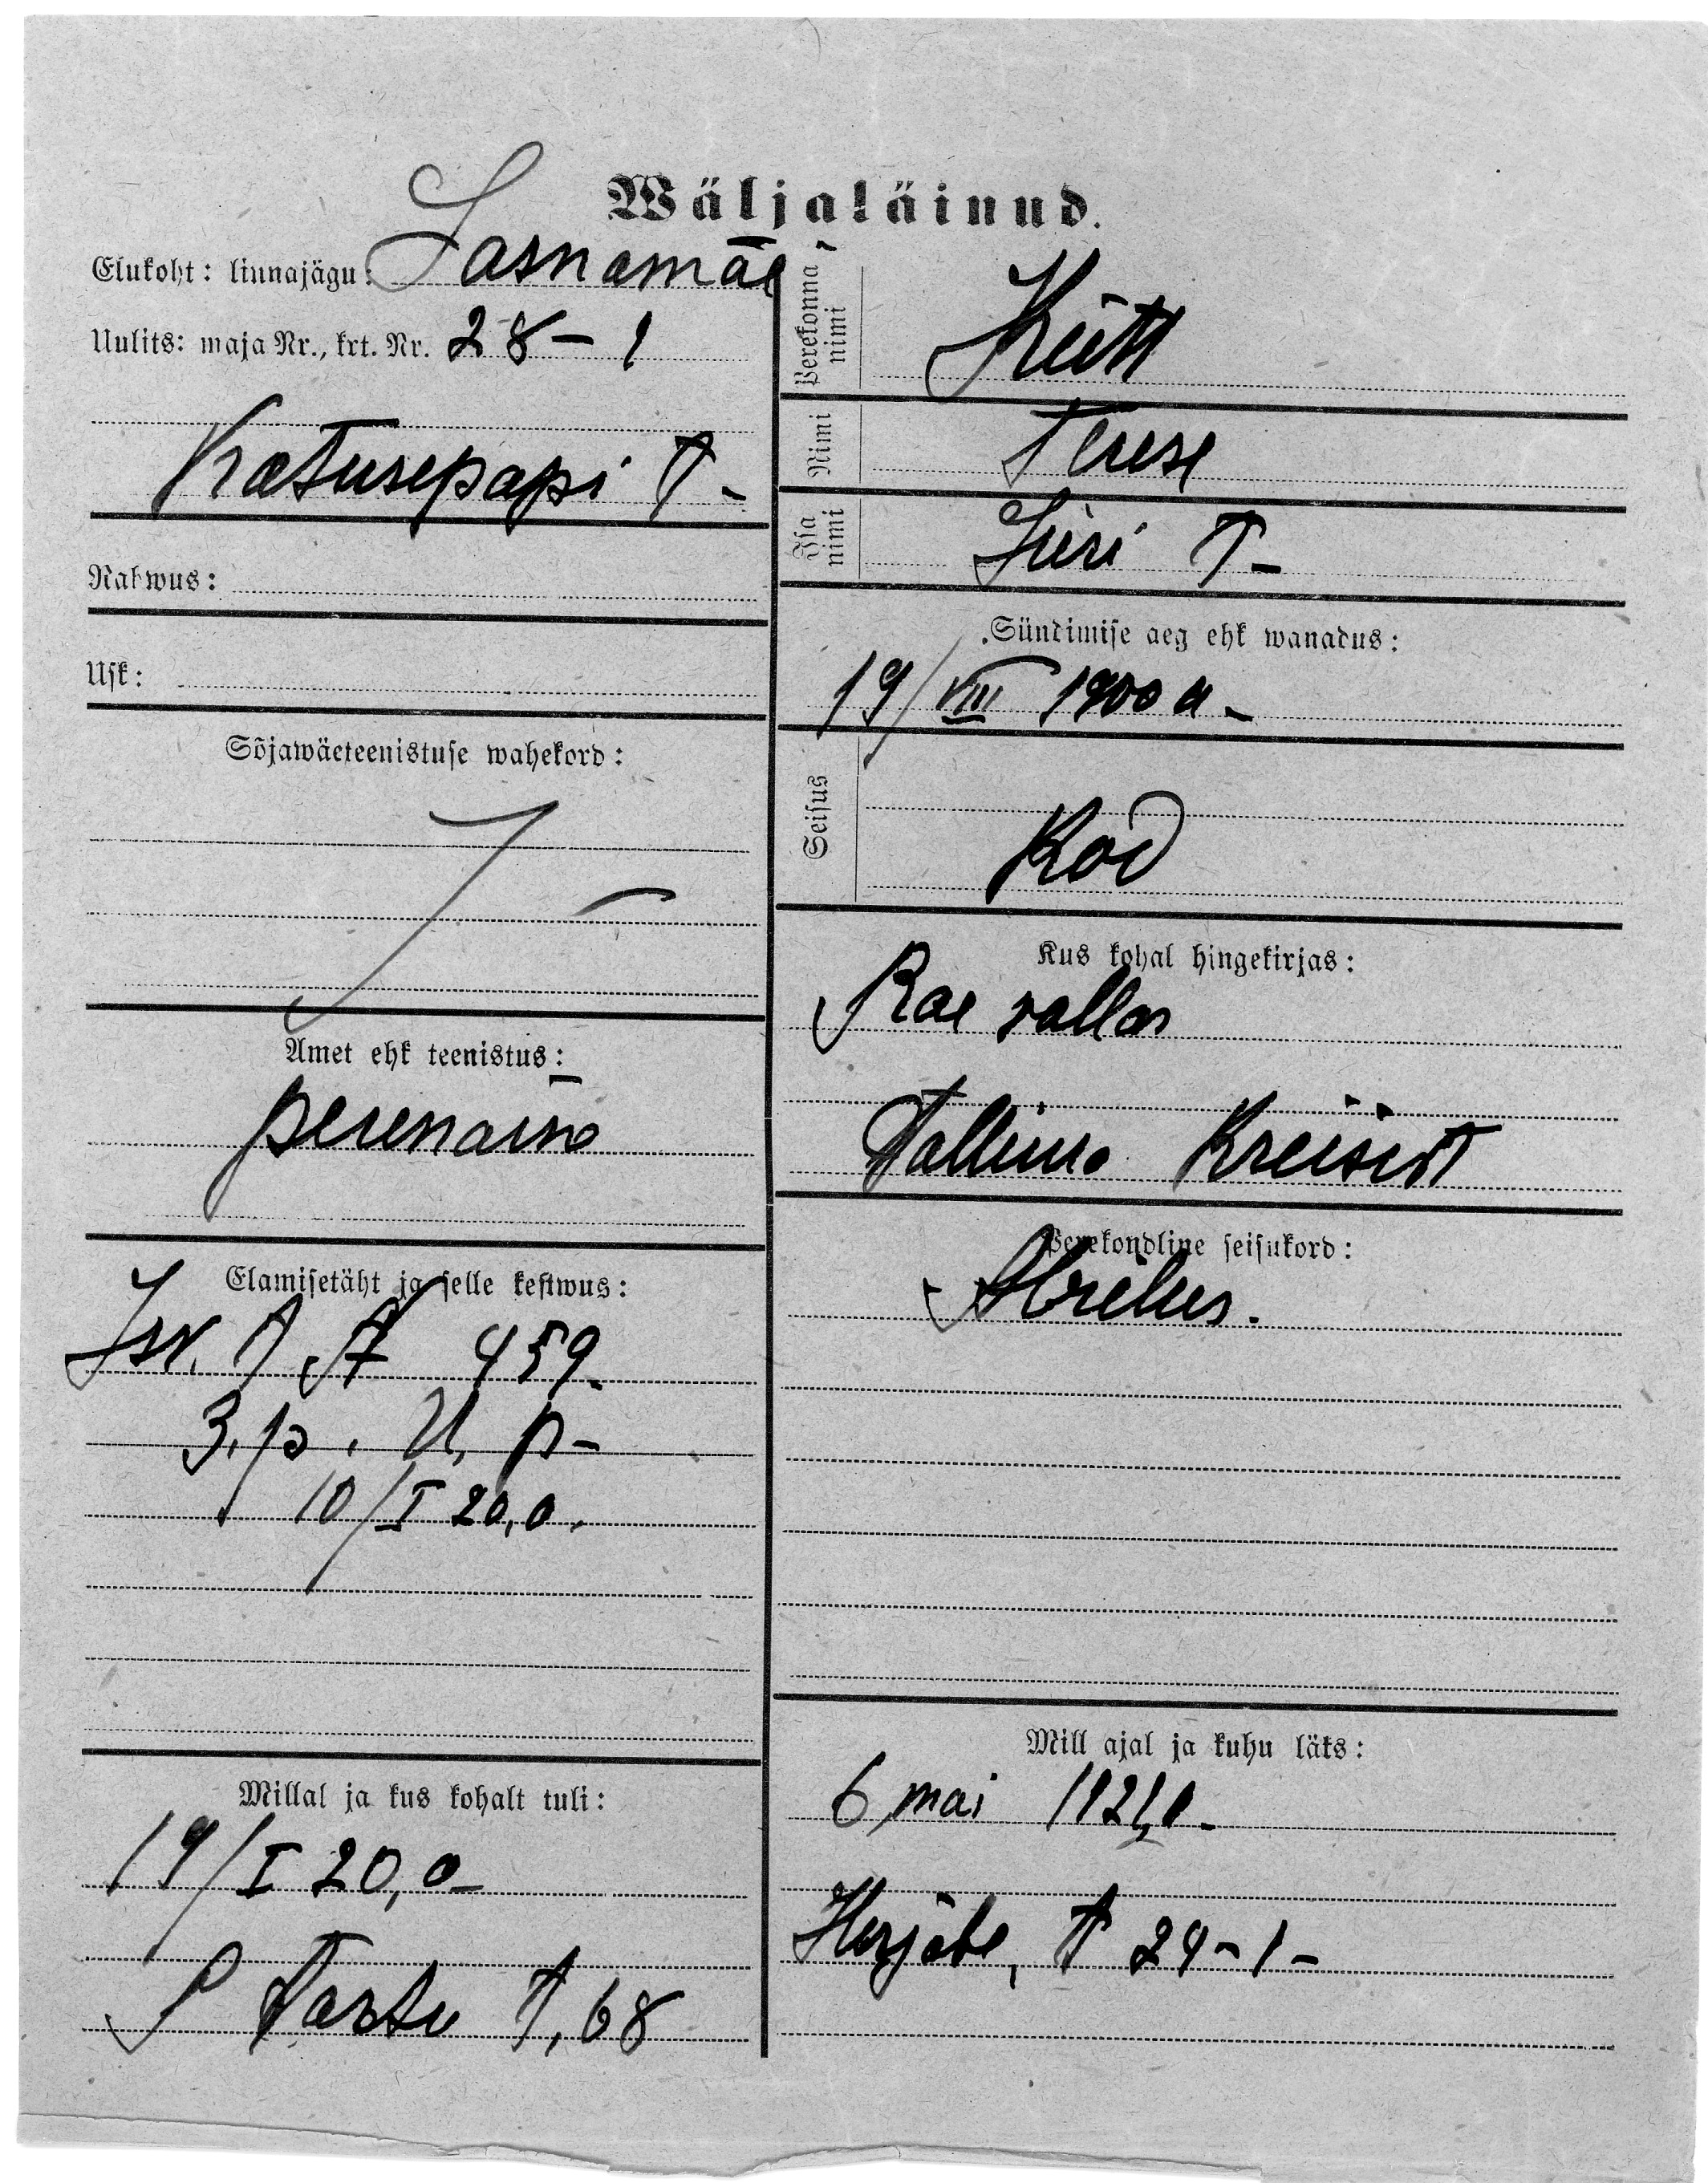 Wäljaläinud.
Elukoht: linnajägu: Lasnamäe
Uulits: maja Nr., krt. Nr. 28 – 1
Katusepapi T –
Rahwus:
Usk:
Sõjawäeteenistuse wahekord:
Amet ehk teenistus:
perenaine
Elamisetäht ja selle kestwus:
Isk. A 459
3. js. U. p –
10/I 20, a.
Millal ja kus kohalt tuli:
19/I 20, a –
S Tartu T, 68
Perekonna nimi
Kütt
Nimi
Terese
Isa nimi
Jüri T –
Sündimise aeg ehk wanadus:
19/VIII 1900 a –
Seisus
Kod
Kus kohal hingekirjas:
Rae vallas
Tallinna Kreisist
Perekondline seisukord:
Abielus.
Mill ajal ja kuhu läks:
6 mai 1921, a –
T 24 – 1 –